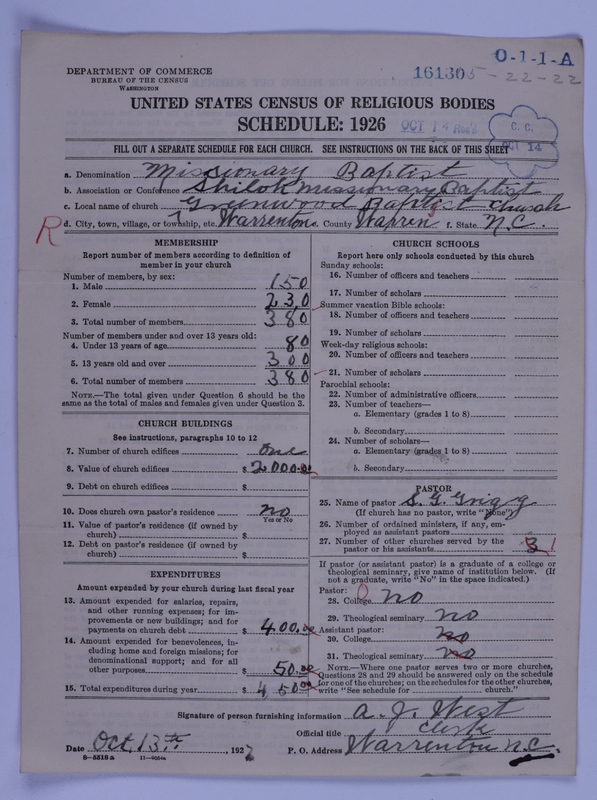 O-1-1-A
DEPARTMENT OF COMMERCE
BUREAU OF THE CENSUS
WASHINGTON
161305-22-22
UNITED STATES CENSUS OF RELIGIOUS BODIES
SCHEDULE: 1926
OCT 14
C. C.
OCT 14
FILL OUT A SEPARATE SCHEDULE FOR EACH CHURCH. SEE INSTRUCTIONS ON THE BACK OF THIS SHEET
a. Denomination Missionary Baptist
b. Association or Conference Shiloh missionary Baptist
c. Local name of church Greenwood Baptist Church
R d. City, town, village, or township, etc. Warrenton e. County Warren f. State N.C.
MEMBERSHIP
Report number of members according to definition of
member in your church
Number of members, by sex:
1. Male 150
2. Female 230
3. Total number of members 380
Number of members under and over 13 years old:
4. Under 13 years of age 80
5. 13 years old and over 300
6. Total number of members 380
NOTE.—The total given under Question 6 should be the
same as the total of males and females given under Question 3.
CHURCH BUILDINGS
See instructions, paragraphs 10 to 12
7. Number of church edifices one
8. Value of church edifices $ 2000.00
9. Debt on church edifices $
10. Does church own pastor's residence? no
Yes or No
11. Value of pastor's residence (if owned by
church) $
12. Debt on pastor's residence (if owned by
church) $
EXPENDITURES
Amount expended by your church during last fiscal year
13. Amount expended for salaries, repairs,
and other running expenses; for im-
provements or new buildings; and for
payments on church debt $ 400.00
14. Amount expended for benevolences, in-
cluding home and foreign missions; for
denominational support; and for all
other purposes $ 50.00
15. Total expenditures during year $ 450.00
CHURCH SCHOOLS
Report here only schools conducted by this church
Sunday schools:
16. Number of officers and teachers
17. Number of scholars
Summer vacation Bible schools:
18. Number of officers and teachers
19. Number of scholars
Week-day religious schools:
20. Number of officers and teachers
21. Number of scholars
Parochial schools:
22. Number of administrative officers
23. Number of teachers—
a. Elementary (grades 1 to 8)
b. Secondary
24. Number of scholars—
a. Elementary (grades 1 to 8)
b. Secondary
PASTOR
25. Name of pastor S. G. Grigg
(If church has no pastor, write "None")
26. Number of ordained ministers, if any, em-
ployed as assistant pastors
27. Number of other churches served by the
pastor or his assistants 3
If pastor (or assistant pastor) is a graduate of a college or
theological seminary, give name of institution below. (If
not a graduate, write "No" in the space indicated.)
Pastor:
28. College no
29. Theological seminary no
Assistant pastor:
30. College no
31. Theological seminary no
NOTE.—Where one pastor serves two or more churches,
Questions 28 and 29 should be answered only on the schedule
for one of the churches; on the schedules for the other churches,
write "See schedule for church."
Signature of person furnishing information A. J. West
Official title Clerk
Date Oct. 13th, 1927 P. O. Address Warrenton N.C.
8-5518a 11-9054a